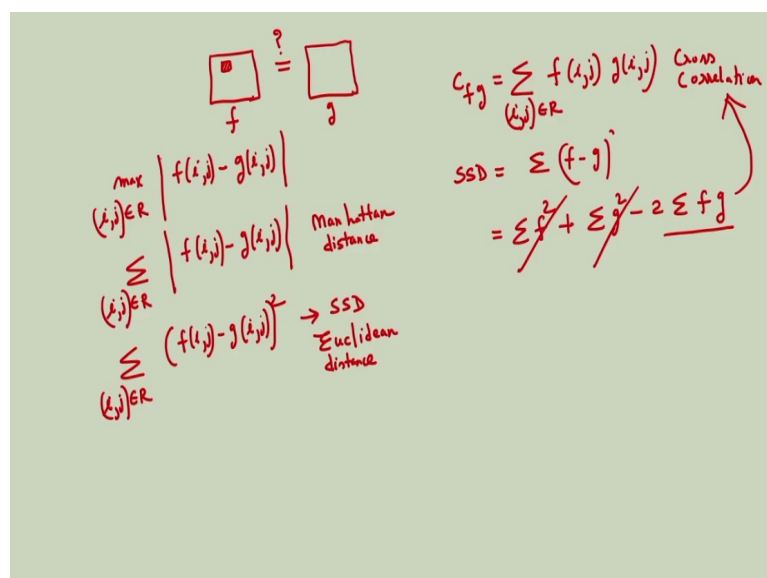 ?
=
f
g
max
(i,j)∈R
| f(i,j) - g(i,j) |
Σ
(i,j)∈R
| f(i,j) - g(i,j) |
Manhattan
distance
Σ
(i,j)∈R
(f(i,j) - g(i,j))²
→ SSD
Euclidean
distance
C_fg = Σ f(i,j) g(i,j)
(i,j)∈R
Cross
Correlation
SSD = Σ (f-g)²
= Σf² + Σg² - 2 Σ f g